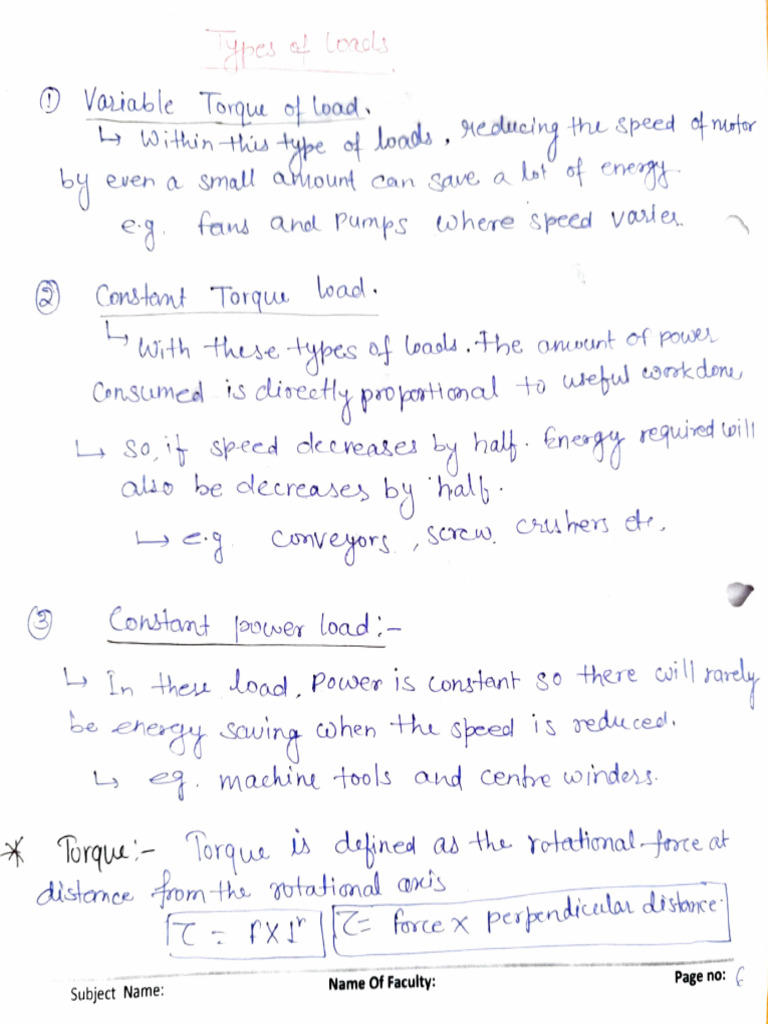 Types of Loads
① Variable Torque of load.
↳ Within this type of loads, reducing the speed of motor
by even a small amount can save a lot of energy.
e.g. fans and Pumps where speed varies.
② Constant Torque load.
↳ With these types of loads. The amount of power
consumed is directly proportional to useful work done,
↳ So, if speed decreases by half. Energy required will
also be decreases by half.
↳ e.g. conveyors, screw. crushers etc.
③ Constant power load:-
↳ In these load, Power is constant so there will rarely
be energy saving when the speed is reduced.
↳ eg. machine tools and centre winders.
* Torque:- Torque is defined as the rotational force at
distance from the rotational axis
τ = F × τ = force × perpendicular distance.
Subject Name: Name Of Faculty: Page no: 6